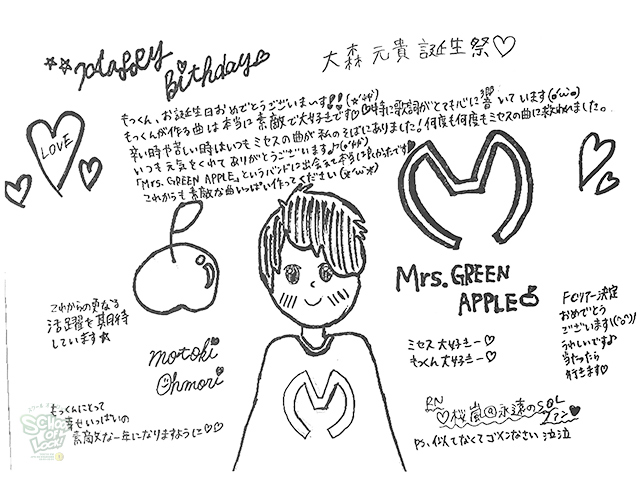 Happy
Birthday
大森元貴誕生祭♡
もっくん、お誕生日おめでとうございまーす!!
もっくんが作る曲は本当に素敵で大好きです♡♡特に歌詞がとても心に響いています(o'ω'o)
辛い時や苦しい時はいつもミセスの曲が私のそばにありました!何度も何度もミセスの曲に救われました。
いつも元気をくれてありがとうございます♪
「Mrs. GREEN APPLE」というバンドに出会えて本当に良かったです♥
これからも素敵な曲いっぱい作ってください
LOVE
Mrs. GREEN
APPLE
これからの更なる
活躍を期待
しています☆
motoki
Ohmori
ミセス大好きー♡
もっくん大好きー♡
FCツアー決定
おめでとう
ございます\(^o^)/
うれしいです♪
当たったら
行きます♡
もっくんにとって
幸せいっぱいの
素敵な一年になりますように♡♡
RN
♡桜嵐@永遠のSOL
ファン♡
PS,似てなくてゴメンなさい 泣泣
SCHOOL
OF
LOCK!